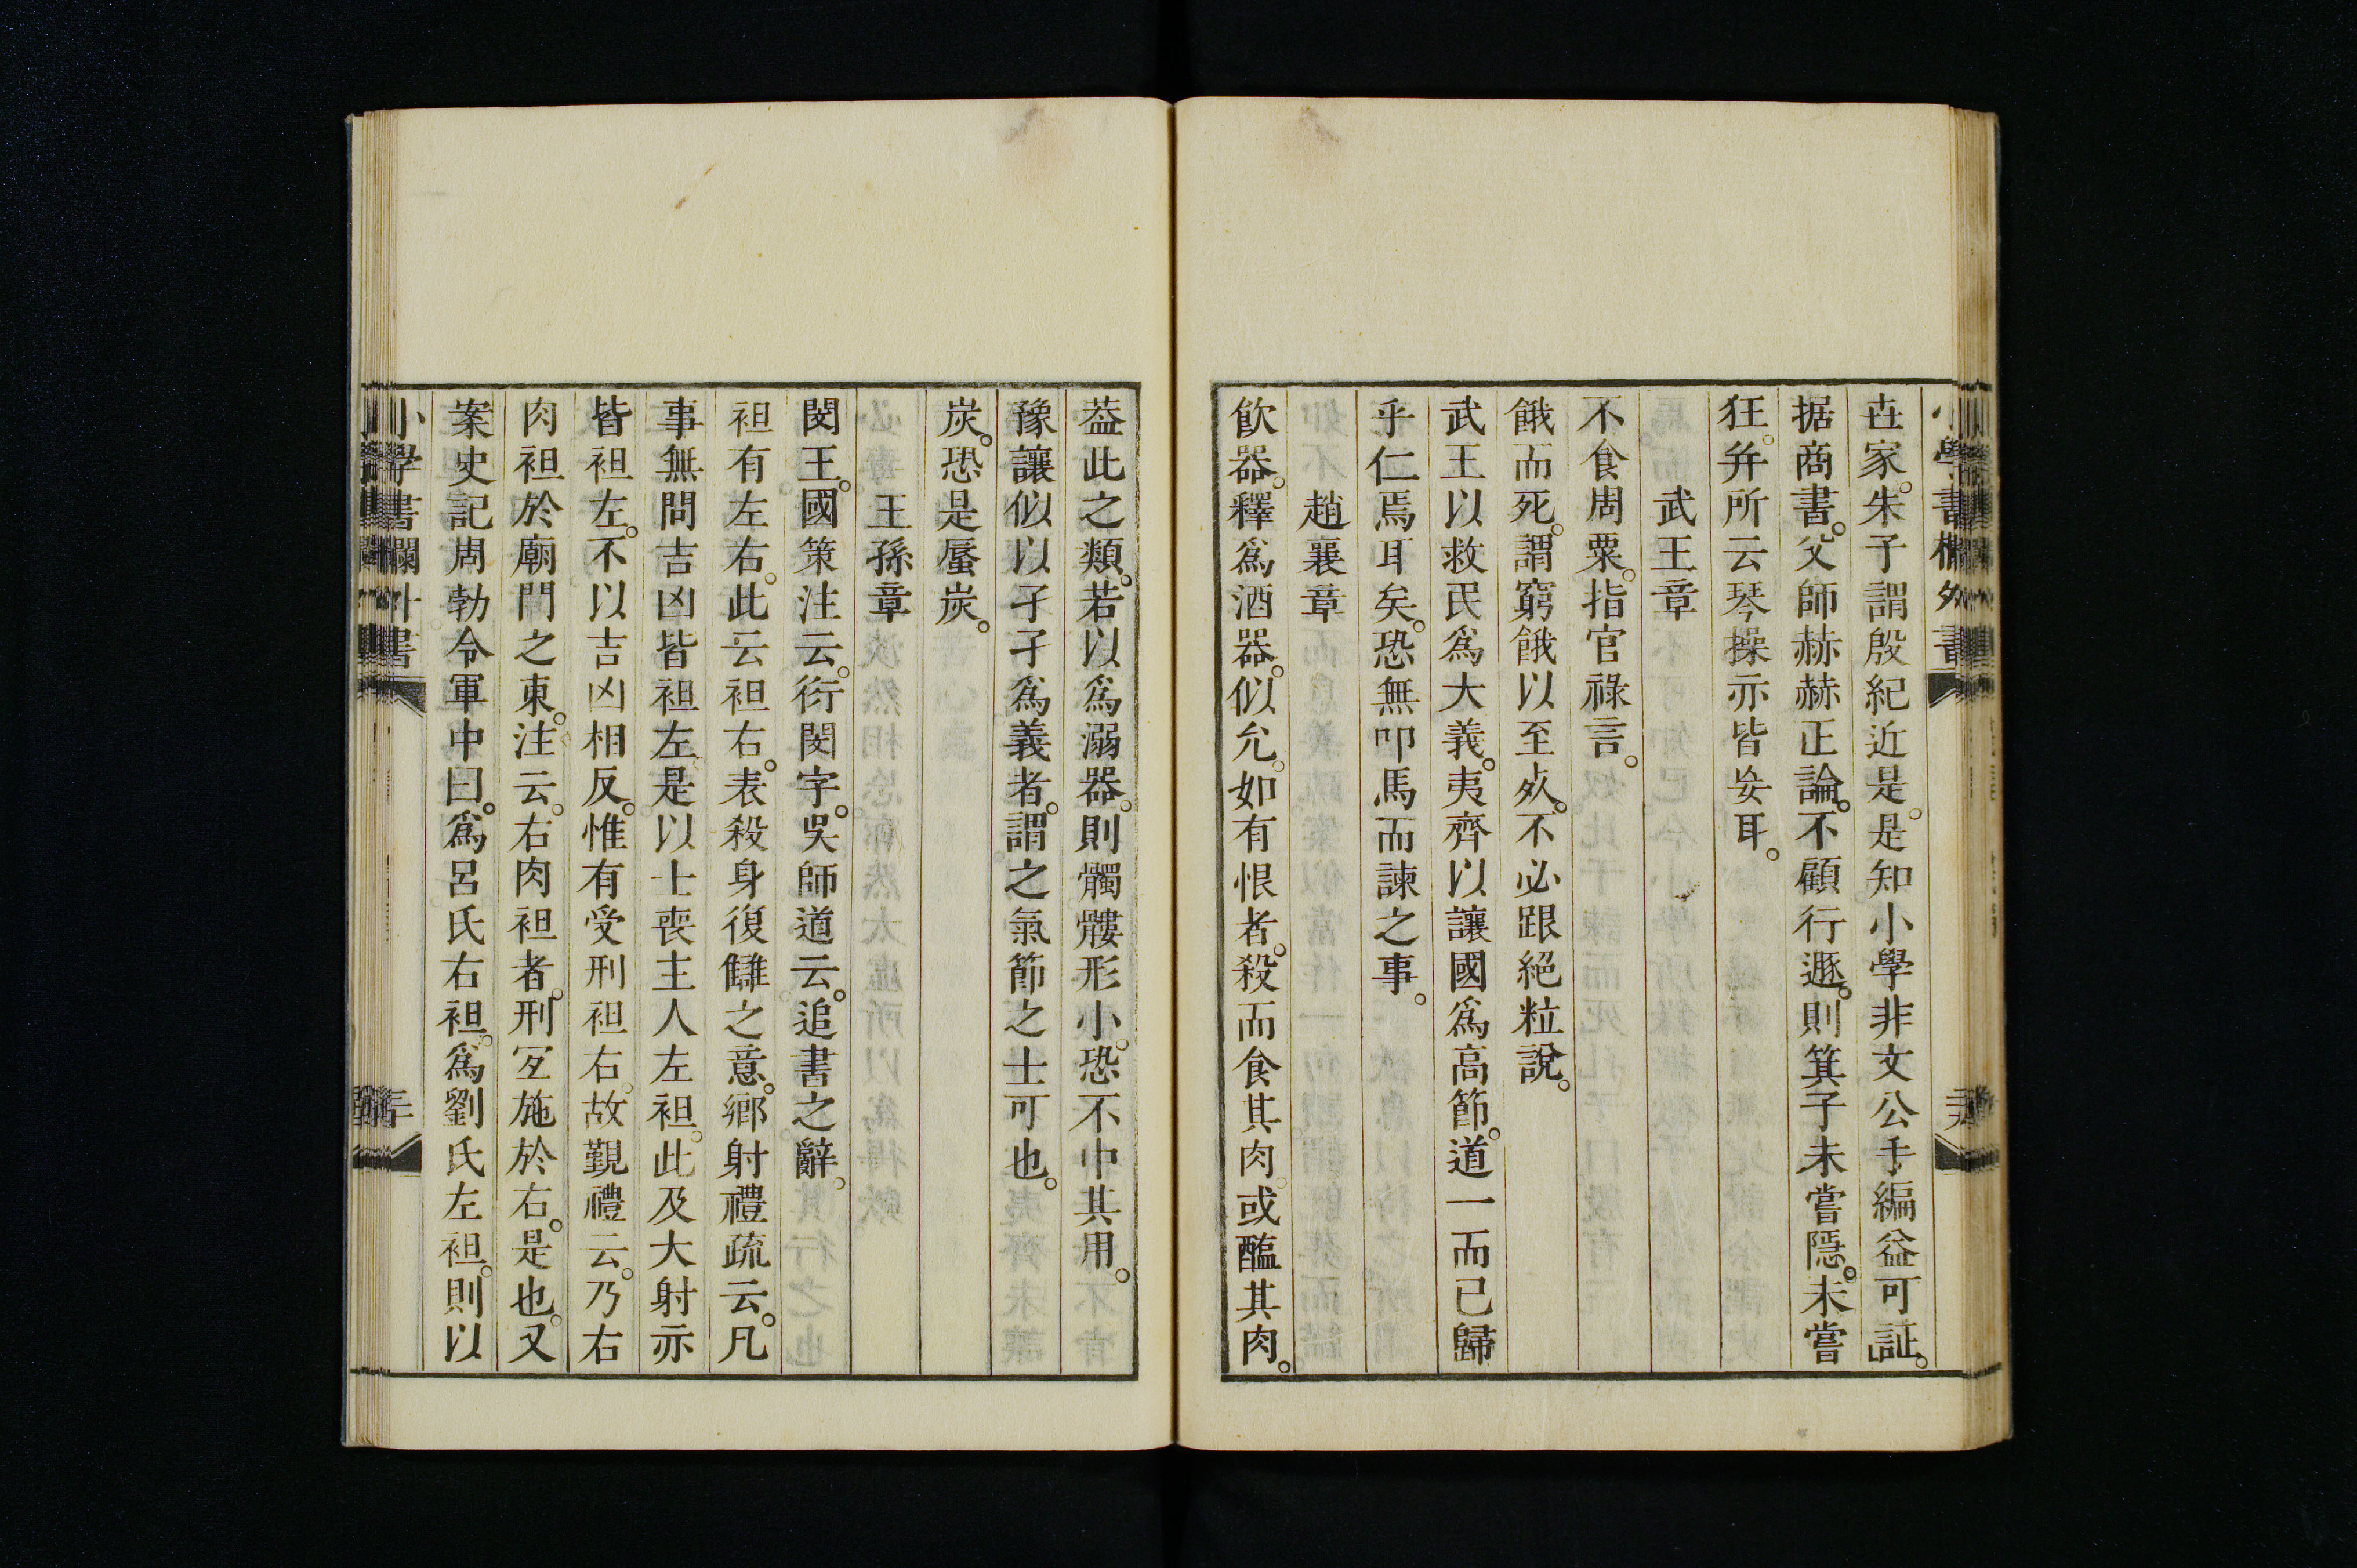 世家。朱子謂殷紀近是。是知小學非文公手編益可証。
据商書。父師赫赫正論。不顧行遯。則箕子未嘗隱。未嘗
狂。并所云琴操亦皆妄耳。
武王章
不食周粟。指官祿言。
餓而死。謂窮餓以至死。不必跟絕粒說。
武王以救民爲大義。夷齊以讓國爲高節。道一而已歸
乎仁焉耳矣。恐無叩馬而諫之事。
趙襄章
飮器。釋爲酒器。似允。如有恨者。殺而食其肉。或醢其肉。
葢此之類。若以爲溺器。則髑髏形小。恐不中其用。
豫讓似以孑孑爲義者。謂之氣節之士可也。
炭。恐是蜃炭。
王孫章
閔王。國策注云。衍閔字。吳師道云。追書之辭。
袒有左右。此云袒右。表殺身復讎之意。鄉射禮疏云。凡
事無問吉凶皆袒左。是以士喪主人左袒。此及大射亦
皆袒左。不以吉凶相反。惟有受刑袒右。故觐禮云。乃右
肉袒於廟門之東。注云。右肉袒者。刑宜施於右。是也。又
案史記周勃令軍中曰。爲呂氏右袒。爲劉氏左袒。則以
小學書欄外書